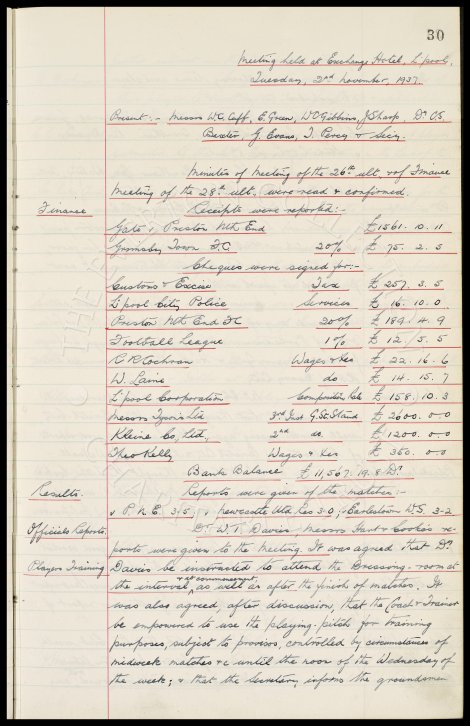 30
Meeting held at Exchange Hotel, L'pool,
Tuesday, 2nd November, 1937.
Present:- Messrs W.C. Cuff, E. Green, W.C. Gibbins, J. Sharp, Dr C.S.
Baxter, G. Evans, T. Percy & Secy.
Minutes of Meeting of the 26th ult. & of Finance
Meeting of the 28th ult., were read & confirmed.
Finance
Receipts were reported:-
Gate v. Preston Nth End £1561. 10. 11
Grimsby Town FC 20% £ 75. 2. 5
Cheques were signed for:-
Customs & Excise Tax £ 257. 3. 5
L'pool City Police Services £ 16. 10. 0
Preston Nth End FC 20% £ 189. 4. 9
Football League 1% £ 12. 5. 5
Cochran Wages &es £ 22. 16. 6
W. Laine do £ 14. 15. 7
L'pool Corporation £ 158. 10. 3
Messrs Tysons Ltd 3rd Inst G. St. Stand £ 2600. 0. 0
Kleine Co, Ltd, 2nd do. £ 1200. 0. 0
Theo Kelly Wages & £ 350. 0. 0
Bank Balance £ 11,567. 19. 8 Dr
Results.
Reports were given of the matches:-
v P.N.E. 3-5; v Newcastle Utd Res 3-0; v Earlestown W.S. 3-2
Officials Reports.
Dr W.T. Davies Messrs Hunt & Cooke's re-
ports were given to the meeting. It was agreed that Dr
Players Training
Davies be instructed to attend the Dressing-room at
& at commencement
the interval, as well as after the finish of matches. It
was also agreed, after discussion, that the Coach & Trainer
be empowered to use the playing-pitch for training
purposes, subject to provisos, controlled by circumstances of
midweek matches &c until the noon of the Wednesday of
the week; & that the Secretary informs the groundsmen